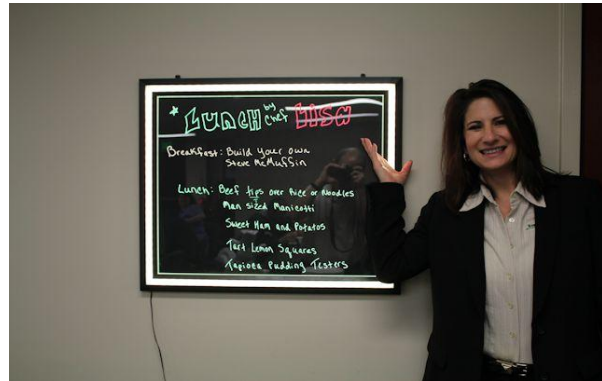 Lunch by Chef Lisa
Breakfast: Build your own
Steve McMuffin
Lunch: Beef tips over Rice or Noodles
Man sized Manicotti
Sweet Ham and Potatos
Tart Lemon Squares
Tapioca Pudding Testers